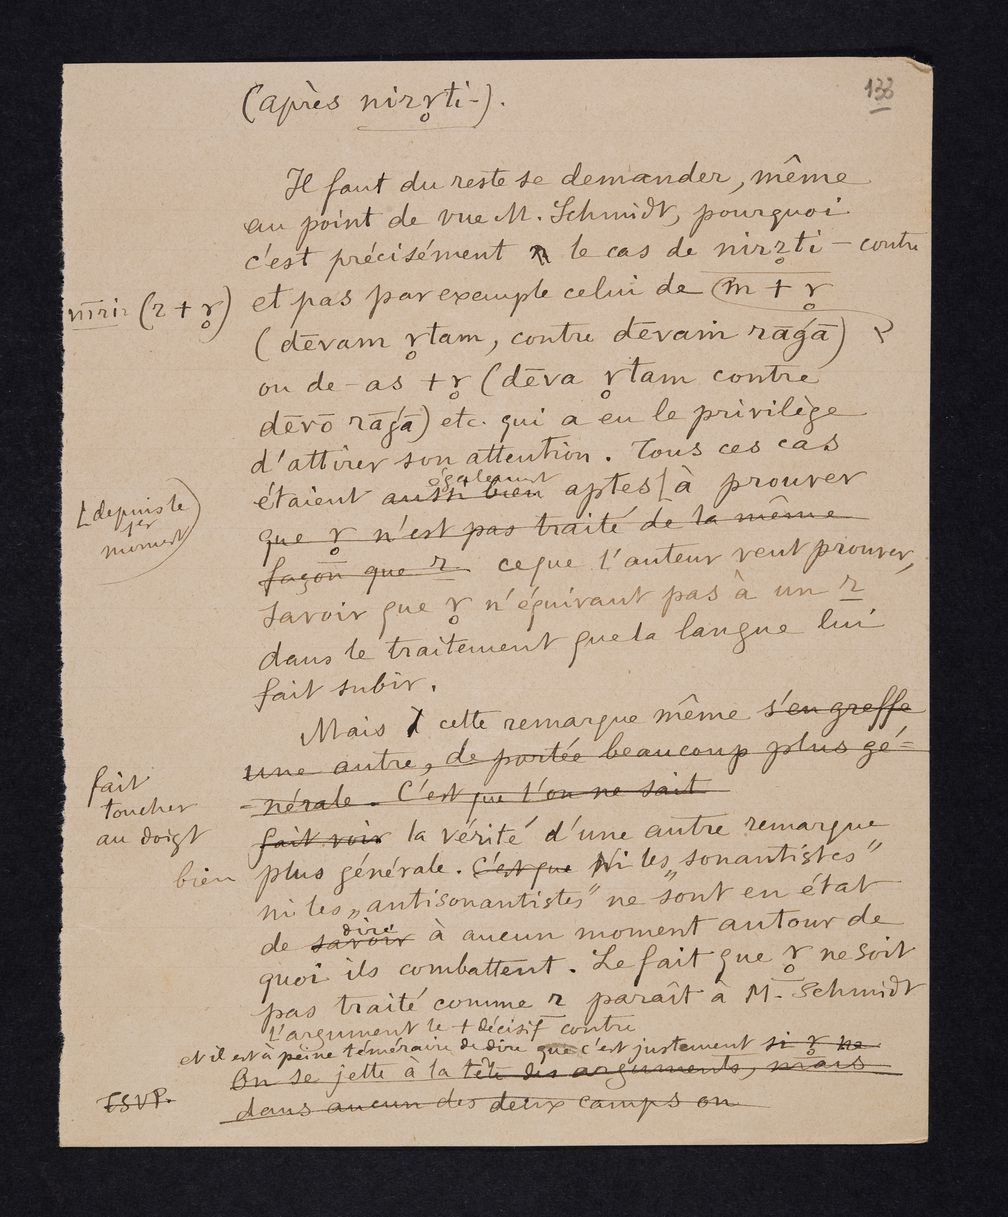 133
(après nirr̥ti-).
Il faut du reste se demander, même
au point de vue M. Schmidt, pourquoi
c'est précisément le cas de nirr̥ti – contre
nirir (r + r̥)
et pas par exemple celui de m + r̥
(dēvam r̥tam, contre dēvaṁ rāǵā)
ou de -as + r̥ (dēva r̥tam contre
dēvō rāǵā) etc. qui a eu le privilège
d'attirer son attention. Tous ces cas
également
étaient aussi bien aptes [à prouver
[depuis le
1er
moment
que r̥ n'est pas traité de la même
façon que r. ce que l'auteur veut prouver,
savoir que r̥ n'équivaut pas à un r
dans le traitement que la langue lui
fait subir.
Mais cette remarque même s'en greffe
une autre, de portée beaucoup plus gé=
=nérale. C'est que l'on ne sait
fait
toucher
au doigt
fait voir la vérité d'une autre remarque
bien plus générale. C'est que Ni les „sonantistes"
ni les „antisonantistes" ne sont en état
dire
de savoir à aucun moment autour de
quoi ils combattent. Le fait que r̥ ne soit
pas traité comme r paraît à M. Schmidt
L'argument le + décisif contre
et il est à peine téméraire de dire que c'est justement si r̥ ne
On se jette à la tête des arguments, mais
dans aucun des deux camps on
TSVP.